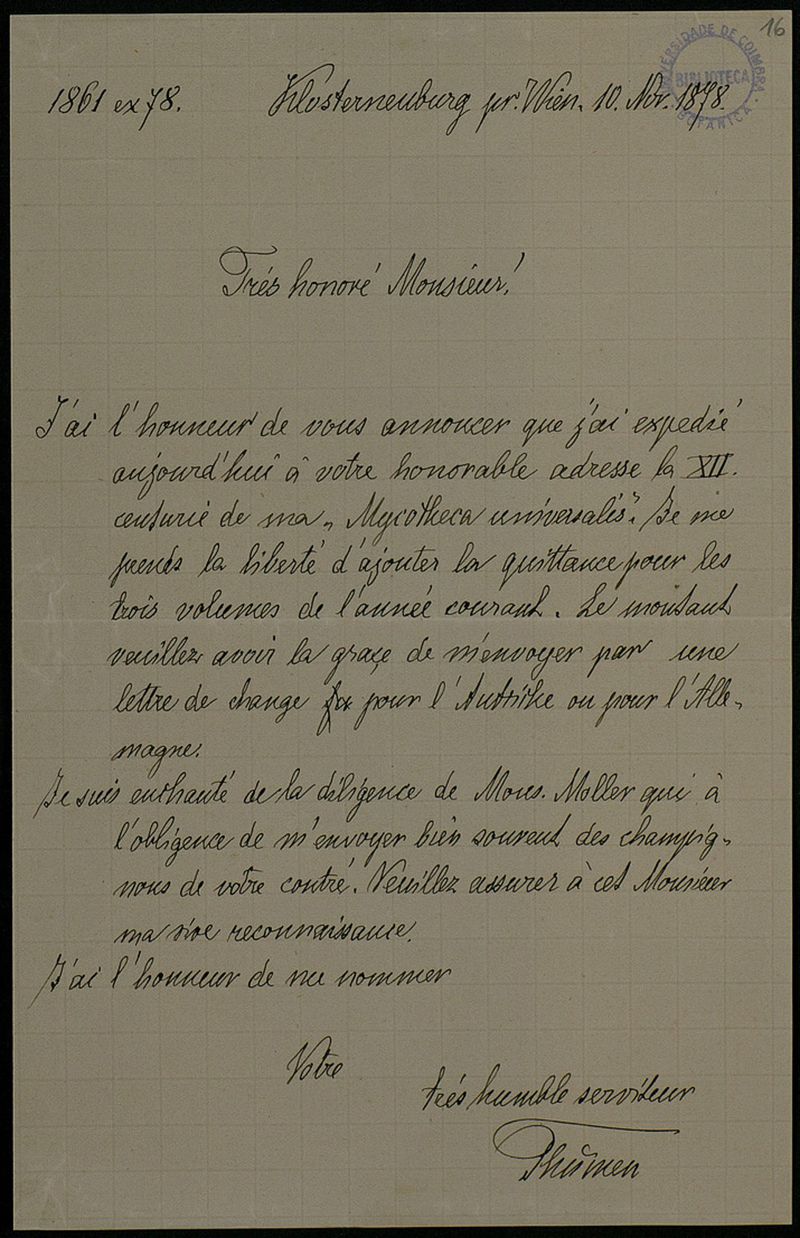 16
UNIVERSIDADE DE COIMBRA
BIBLIOTECA
BOTANICA
1861 ex 78. Klosterneuburg pr. Wien. 10. Nov. 1878.
Trés honoré Monsieur!
J'ai l'honneur de vous annoncer que j'ai expedié
aujourd'hui à votre honorable adresse la XII.
centurie de ma „Mycotheca universalis". Je me
prends la liberté d'ajouter la quittance pour les
trois volumes de l'année courant. Le montant
veuillez avoir la graçe de m'envoyer par une
lettre de change pour l'Autriche ou pour l'Alle-
magne.
Je suis enchanté de la diligence de Mons. Moller qui à
l'obligence de m'envoyer bien souvent des champig-
nons de votre contré. Veuillez assurer à cet Monsieur
ma vive reconnaissance.
J'ai l'honneur de me nommer
Votre
trés humble serviteur
Thümen